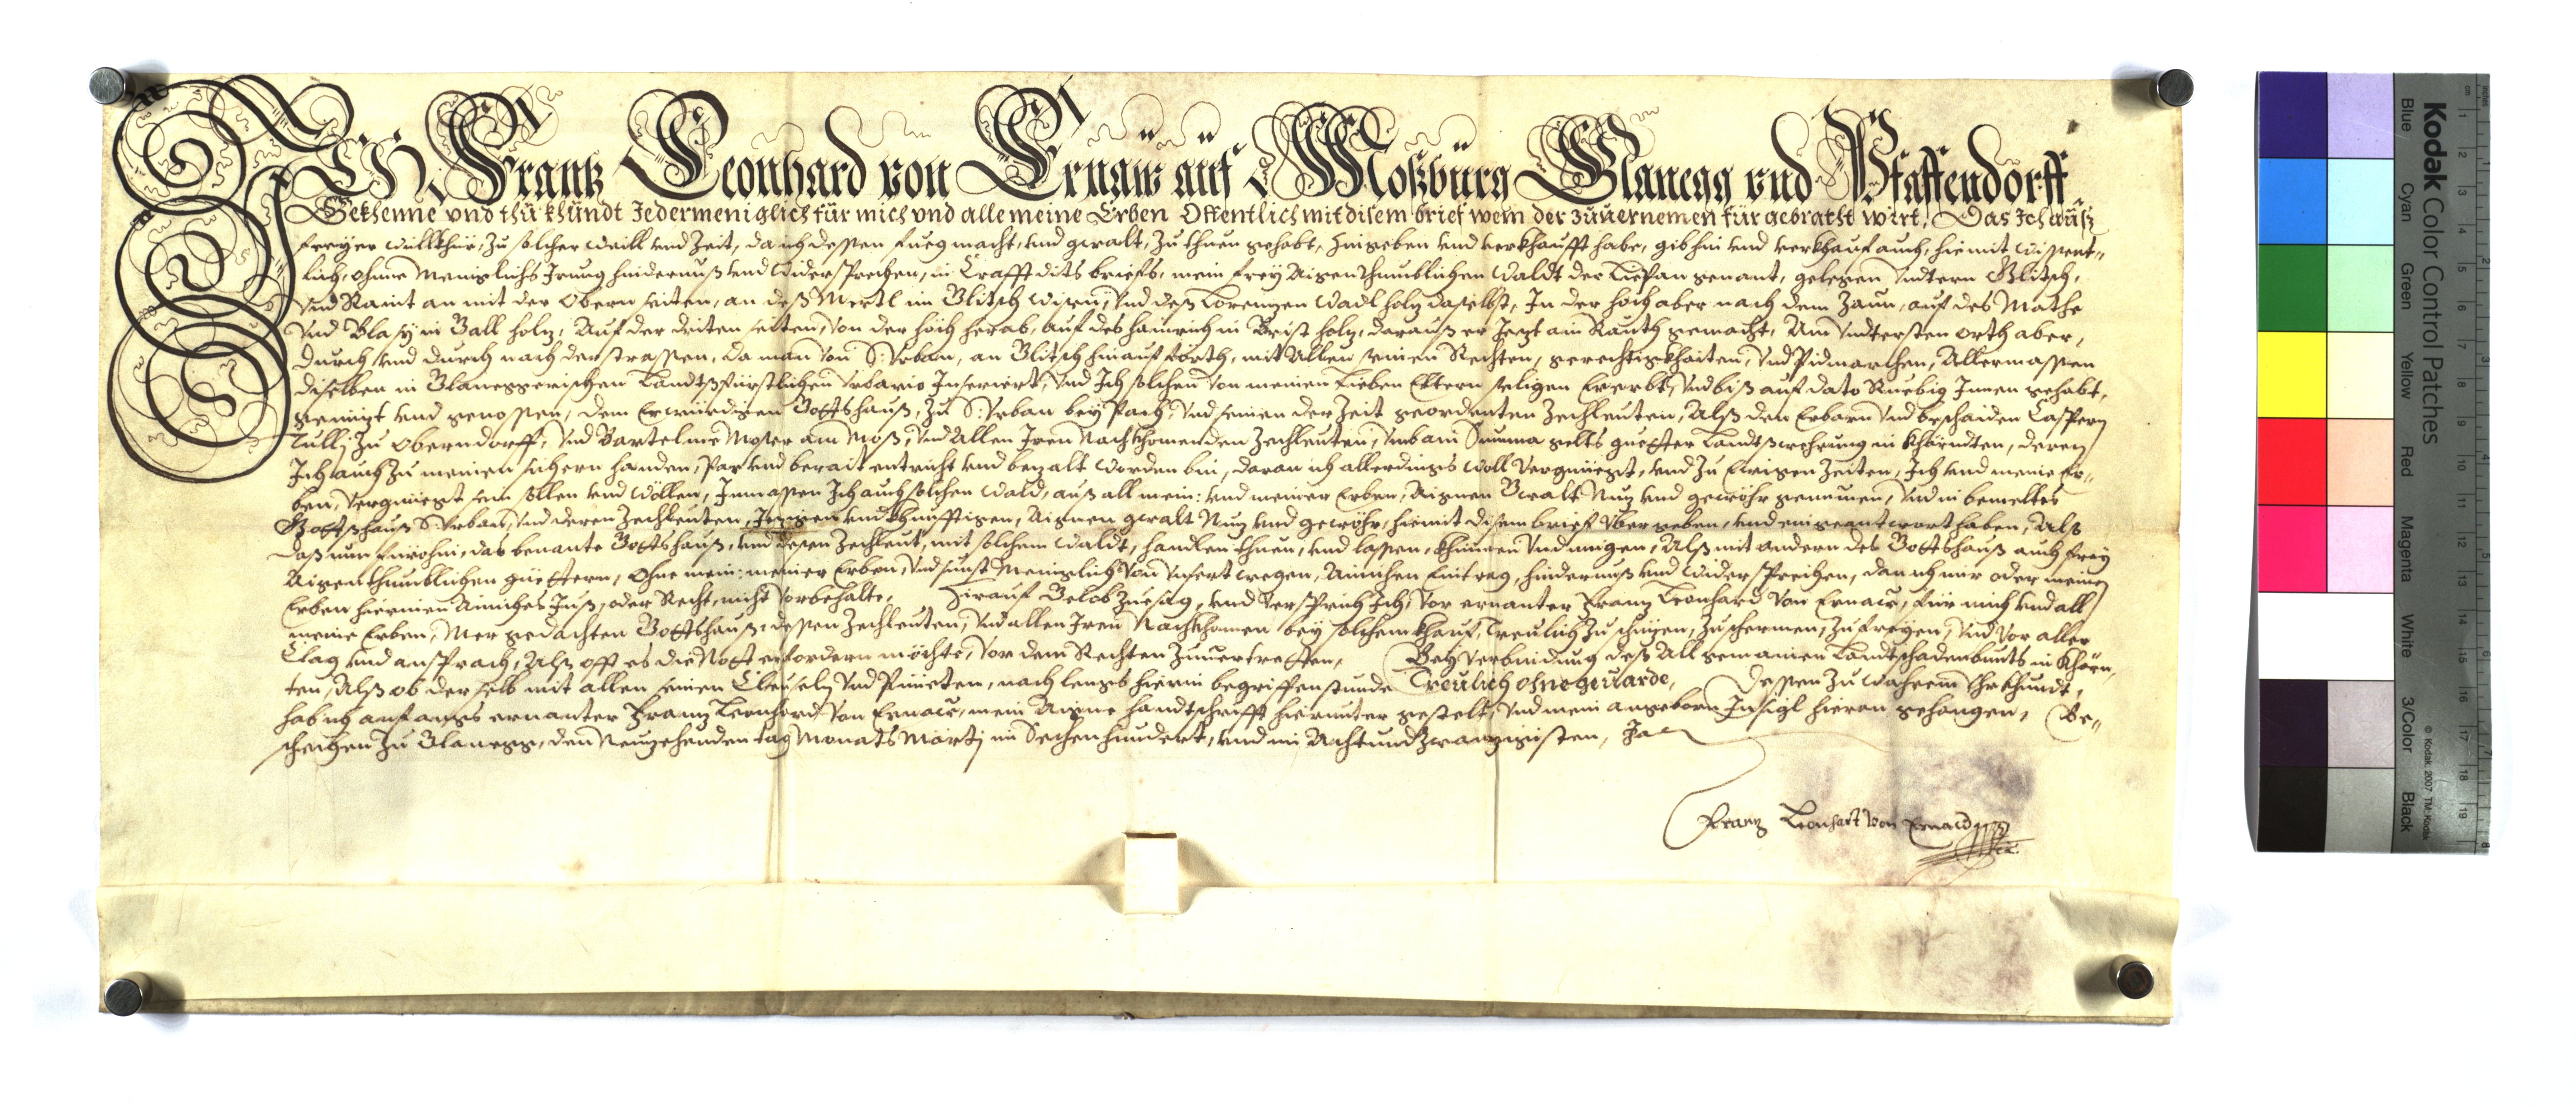 ICH Frantz Leonhard von Ernaw auf Moßburg Glanegg vnd Pfaffendorff
Bekhenne vnd thu khundt Jedermeniglich für mich vnd alle meine Erben Offentlich mit disem brief wem der zuuernemen für gebracht wirt, Das Ich auß
freyer willkhür, zu solcher weill vnd Zeit, da ich dessen fueg macht, vnd gwalt, zu thuen gehabt, hingeben vnd verkhaufft habe, gib hin vnd verkhauf auch, hiemit wissent„
lich, ohnne Meniglichs Irrung hindernuß vnd widersprechen, in Crafft dits briefs, mein frey Aigenthumblichen Waldt der genant, gelegen vndtern Glitsch,
vnd Raint an mit der Obern seiten, an deß Mertl im Glitsch wisen, vnd deß Lorenzen Wadl holz daselbst, In der höch aber nach dem Zaun, auf des Mathe
vnd Blasy in holz, Auf der driten seiten, von der höch herab, auf des Hainrich in holz, darauß er Jezt ain Rauth gemacht, Am vndtersten Orth aber,
durch vnd durch nach der strassen, da man von S: Vrban, an Glitsch hinauf, mit Allen seinen Rechten, gerechtigkhaiten, vnd Pidmarchen, Allermassen
dieselben in Glaneggerischen Landtsfürstlichen Vrbario Inseriert, vnd Ich solchen von meinen Lieben Eltern seligen Ererbt, vnd biß auf dato Ruebig Innen gehabt,
genuzt vnd genossen, dem Erwürdigen Gottshauß, zu S: Vrban bey Pach, vnd seinen der Zeit geordenten Zechleuten, Alß den Erbarn vnd beschaiden Caspern
zu Oberndorff, vnd Bartelmee Moser am Moß, vnd Allen Iren Nachkhomenden Zechleuten, vmb ain Summa gelts guetter Landtswehrung in Khärndten, deren
Ich auch zu meinen sichern handen, Par vnd berait entricht vnd bezalt worden bin, daran ich allerdings woll vergnüegt, vnd zu Ewigen Zeiten, Ich vnd meine Er„
ben, vergnüegt sein sollen vnd wöllen, Inmassen Ich auch solchen Wald, auß all mein: vnd meiner Erben, Aignen Gwalt Nuz vnd gewöhr genumen, vnd in bemeltes
Gottshauß S: Vrban, vnd deren Zechleuten, Jezigen vnd khunfftigen, Aignen gwalt Nuz vnd gewöhr, hiemit disem brief vbergeben, vnd eingeantwort haben, Alß
daß nun fürohin, das benante Gottshauß, vnd dessen Zechleut, mit solchem Waldt, handlen thuen, vnd lassen, khünnen vnd mügen, Alß mit andern des Gottshauß auch frey
Aigenthumblichen güettern, Ohne mein: meiner Erben, vnd sunst Meniglich von vnsert wegen, Ainichen Eintrag, hindernuß vnd widersprechen, dan ich mir oder meinen
Erben hierinen Ainiches Juß, oder Recht, nicht Vorbehalte, Hierauf Gelob Zuesag, vnd Versprich Ich, Vor ernanter Franz Leonhard Von Ernaw, für mich vnd all
meine Erben, Mer gedachten Gottshauß, dessen Zechleuten, vnd allen Iren Nachkhomen bey solchem khauf, Treulich zu schüzen, zu schermen, zu freyen, vnd vor aller
Clag vnd ansprach, Alß offt es die Nott erfordern möchte, Vor dem Rechten zuuertretten, Bey Verbindung deß All gemainen Landtschadenbunts in Khärn„
ten, Alß ob derselb mit allen seinen Clauseln vnd Puncten, nach lengs hierin begriffen stunde Treulich ohne geuärde, Dessen zu wahrem Vhrkhundt,
hab ich anfangs ernanter Franz Leonhard Von Ernaw, mein Aigne handtschrifft hierunter gestelt, vnd mein angeborn Insigl hieran gehangen, Be„
schechen zu Glanegg, den Neunzehenden tag Monats Martj im Sechzenhundert, vnd im Achtundzwanzigisten, Jar
Franz Leonhart von Ernaw